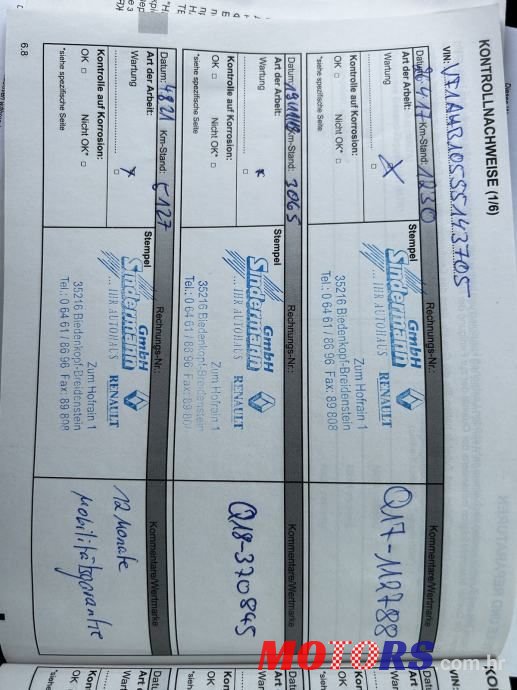 KONTROLLNACHWEISE (1/6)
VIN:
Datum: Km-Stand: 1230 Rechnungs-Nr.: Kommentare/Wertmarke
Art der Arbeit:
Wartung
Kontrolle auf Korrosion:
OK □ Nicht OK* □
*siehe spezifische Seite
Stempel
Sindermann GmbH
... IHR AUTOHAUS RENAULT
Zum Hofrain 1
35216 Biedenkopf-Breidenstein
Tel.: 0 64 61 / 86 96 Fax: 89 808
Datum: Km-Stand: 3065 Rechnungs-Nr.: Kommentare/Wertmarke
Art der Arbeit:
Wartung
Kontrolle auf Korrosion:
OK □ Nicht OK* □
*siehe spezifische Seite
Stempel
Sindermann GmbH
... IHR AUTOHAUS RENAULT
Zum Hofrain 1
35216 Biedenkopf-Breidenstein
Tel.: 0 64 61 / 86 96 Fax: 89 808
Q18-370845
Datum: 4.8.21 Km-Stand: 5127 Rechnungs-Nr.: Kommentare/Wertmarke
Art der Arbeit:
Wartung
Kontrolle auf Korrosion:
OK □ Nicht OK* □
*siehe spezifische Seite
Stempel
Sindermann GmbH
... IHR AUTOHAUS RENAULT
Zum Hofrain 1
35216 Biedenkopf-Breidenstein
Tel.: 0 64 61 / 86 96 Fax: 89 808
12 Monate
Mobilitätsgarantie
6.8
MOTORS.com.hr